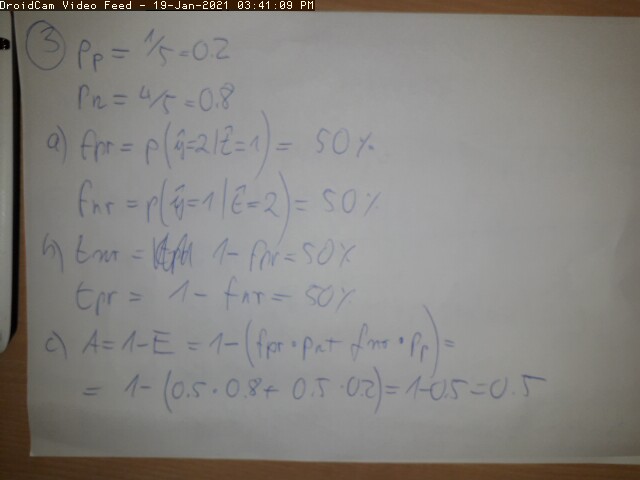 DroidCam Video Feed - 19-Jan-2021 03:41:09 PM
3
Pp = 1/5 = 0.2
Pn = 4/5 = 0.8
a) fpr = p(ŷ=2|t̂=1) = 50%
fnr = p(ŷ=1|t̂=2) = 50%
b) tnr = 1 - fpr = 50%
tpr = 1 - fnr = 50%
c) A = 1-E = 1-(fpr·pn + fnr·pp) =
= 1-(0.5·0.8 + 0.5·0.2) = 1-0.5 = 0.5